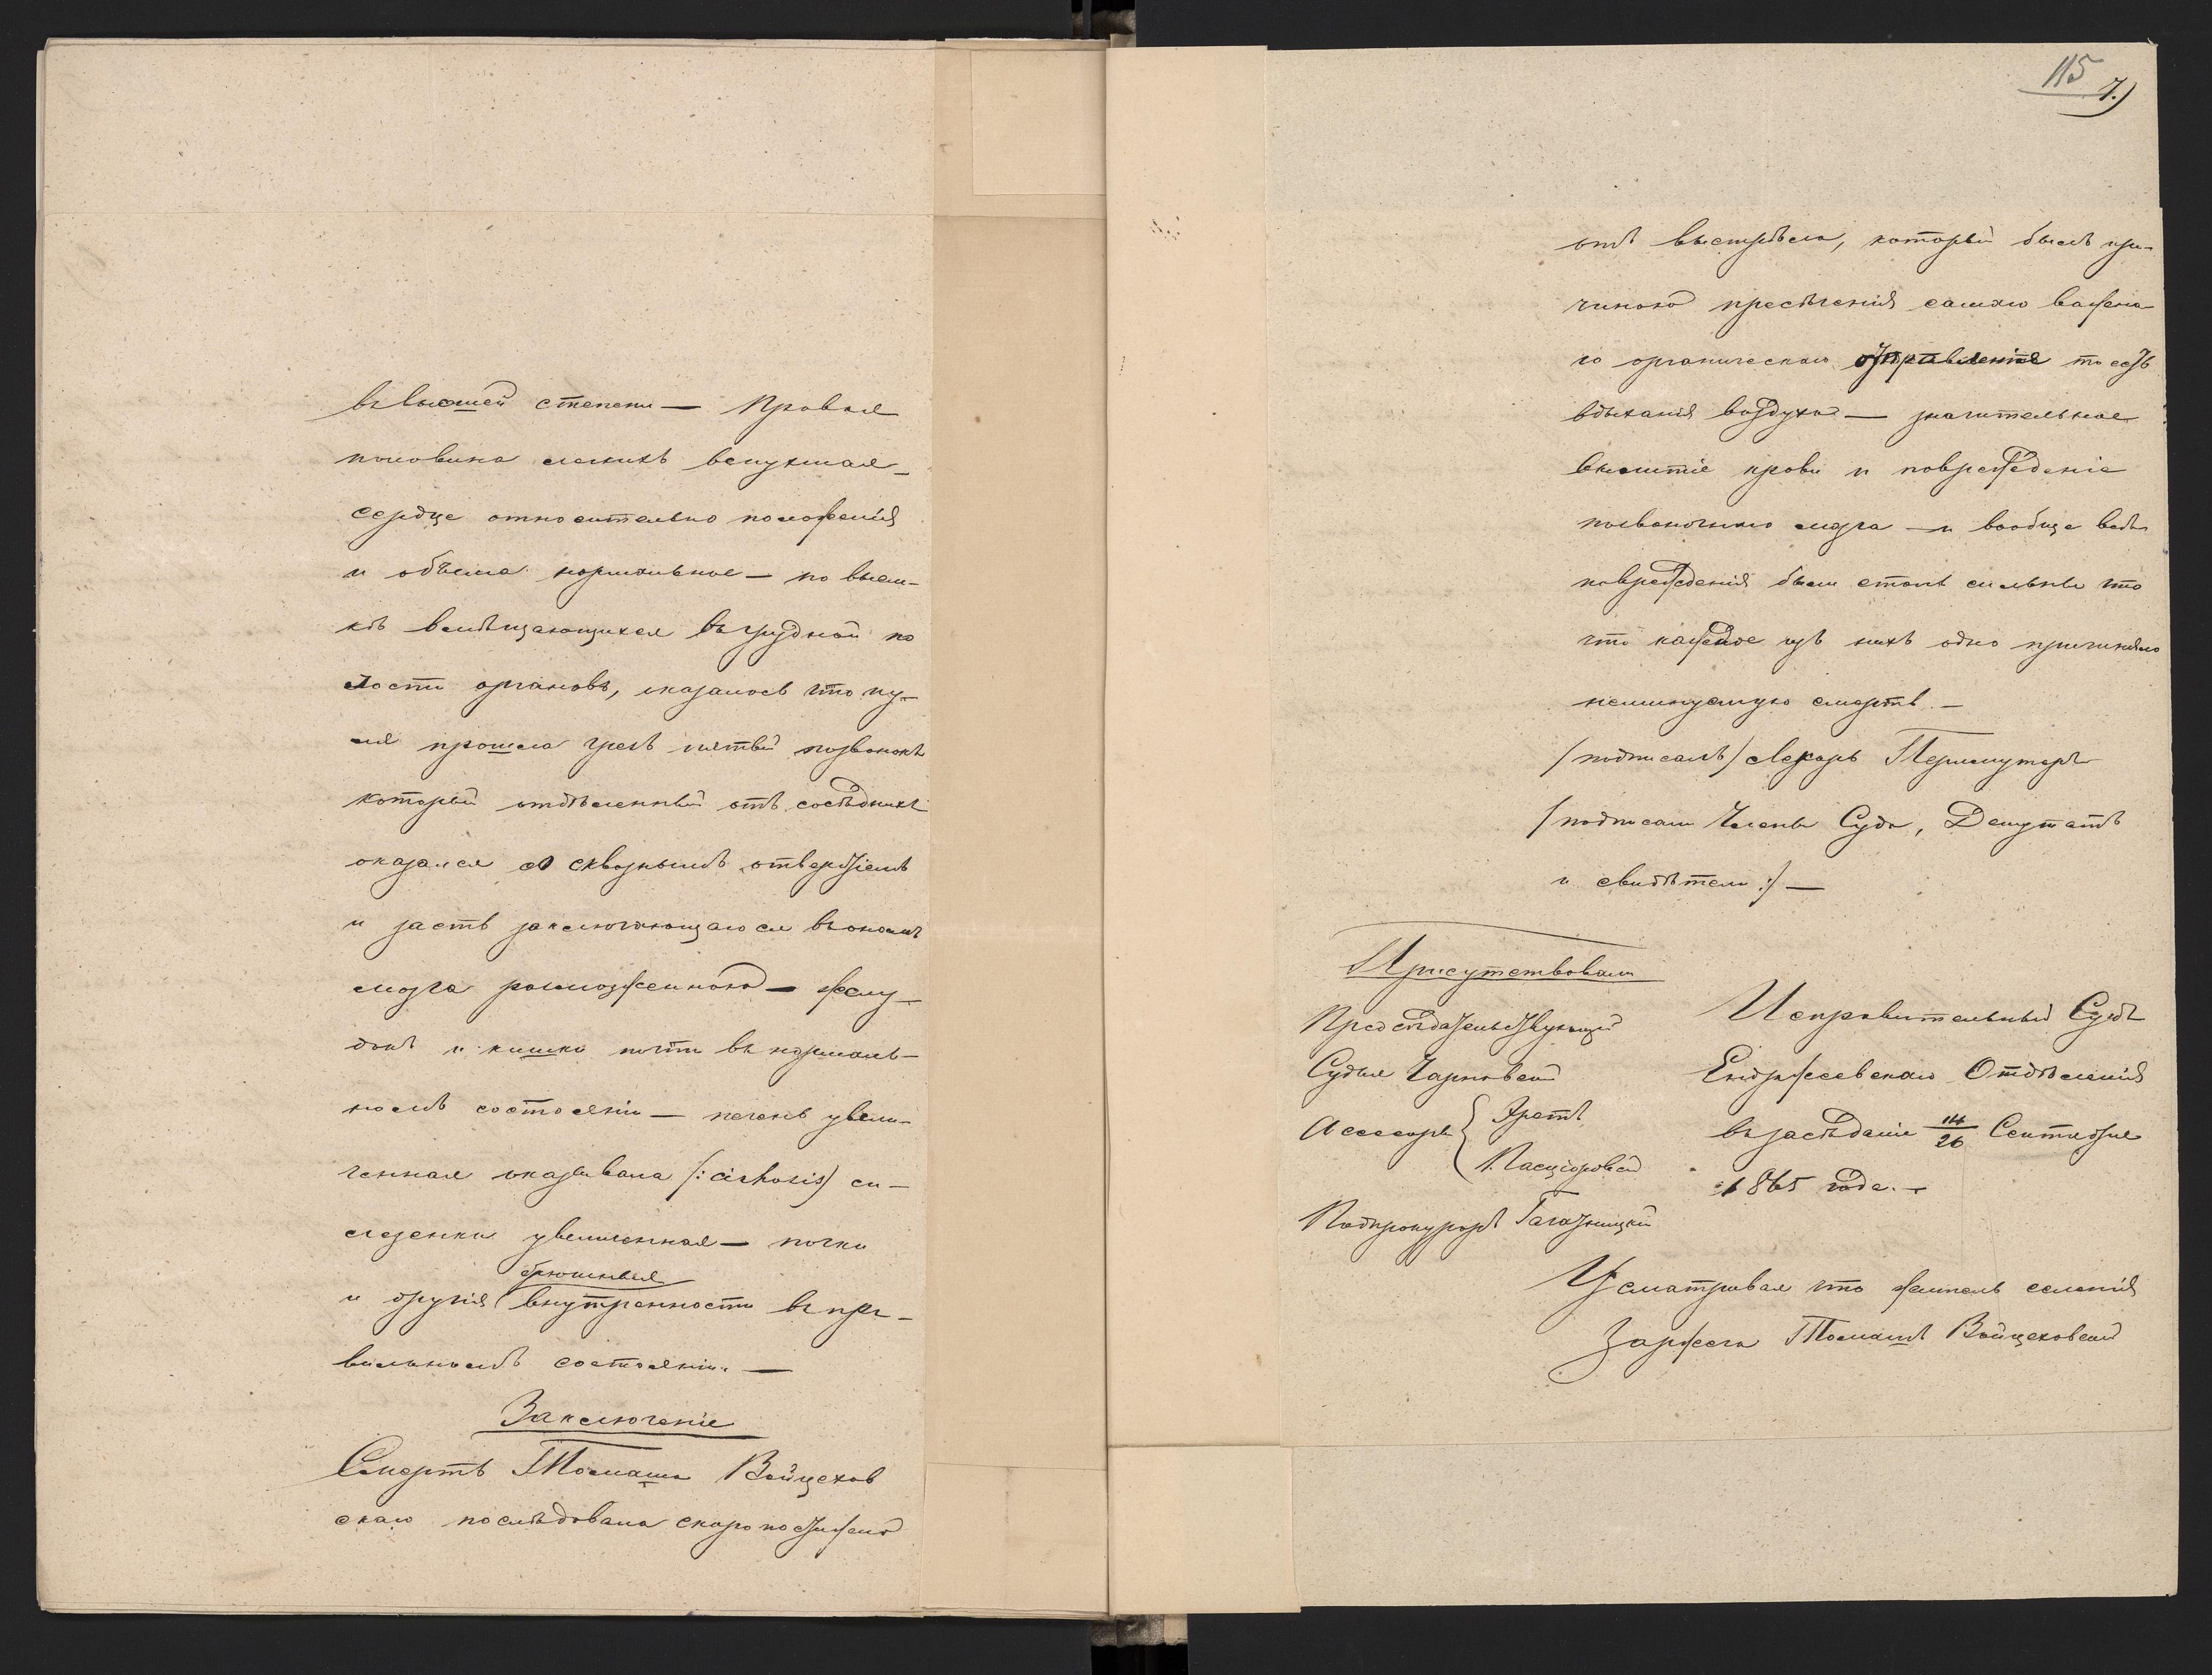 въ высшей степени — Правая
половина легкихъ вспухшая —
сердце относительно положенія
и объема нормальное — по выем-
кѣ вмѣщающихся въ грудной по
лости органовъ, оказалось что пу-
ля прошла чрезъ пятый позвонокъ
который отдѣленный отъ сосѣднихъ
оказался со сквознымъ отверстіемъ
и часть заключающагося въ ономъ
мозга размозженною — желу-
докъ и кишки почти въ нормаль-
номъ состояніи — печень увели-
ченная оказывала (: cirhosis) се-
лезенка увеличенная — почки
брюшныя
и другія внутренности въ пра-
вильномъ состояніи. —
Заключеніе
Смерть Томаша Войцехов
скаго послѣдовала скоропостижно
115 7.)
отъ выстрѣла, который былъ при-
чиною пресѣченія самаго важна
го органическаго отправленія то есть
вдыханія воздуха — значительное
вылитіе крови и поврежденіе
позвоночнаго мозга — и вообще всѣ
поврежденія были столь сильны что
что каждое изъ нихъ одно причиняло
неминуемую смерть. —
(подписалъ) Лекарь Перлмутеръ
(подписали Члены Суда, Депутатъ
и свидѣтели :) —
Присутствовали
Предсѣдательствующій
Судья Чарновскій
Асессоры
Подпрокуроръ
Исправительный Судъ
Енджеевскаго Отдѣленія
въ засѣданіе 14/26 Сентября
1865 года. —
Усматривая что житель селенія
Томашъ Войцеховскій